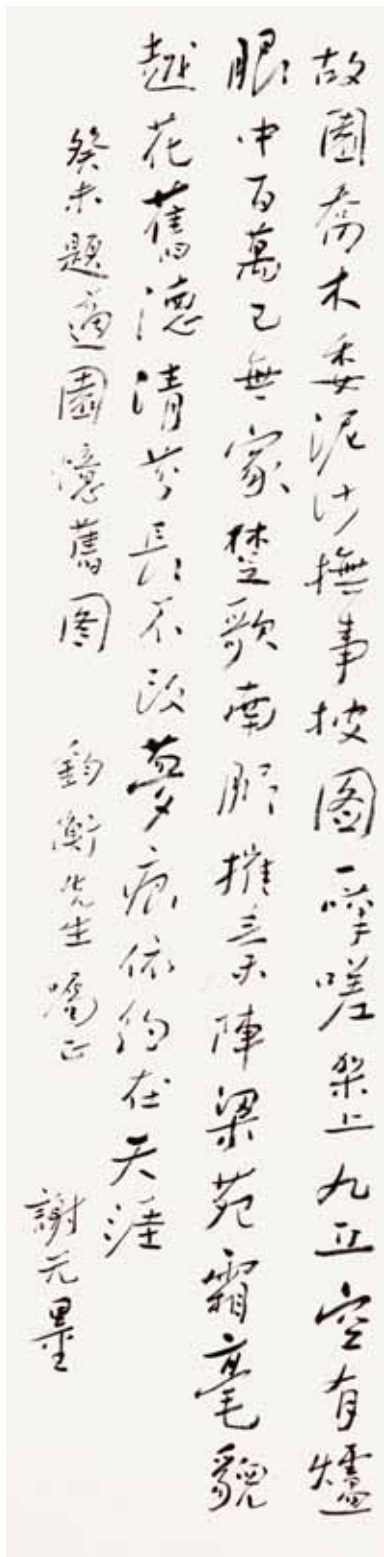 故園喬木委泥沙撫事披圖一嗟架上九丘空有燼
眼中百萬已無家楚歌南陣梁苑霜毫貌
越花舊德清芬長不沒夢痕依約在天涯
癸未題適園憶舊圖 鈞衡先生囑正
謝无量